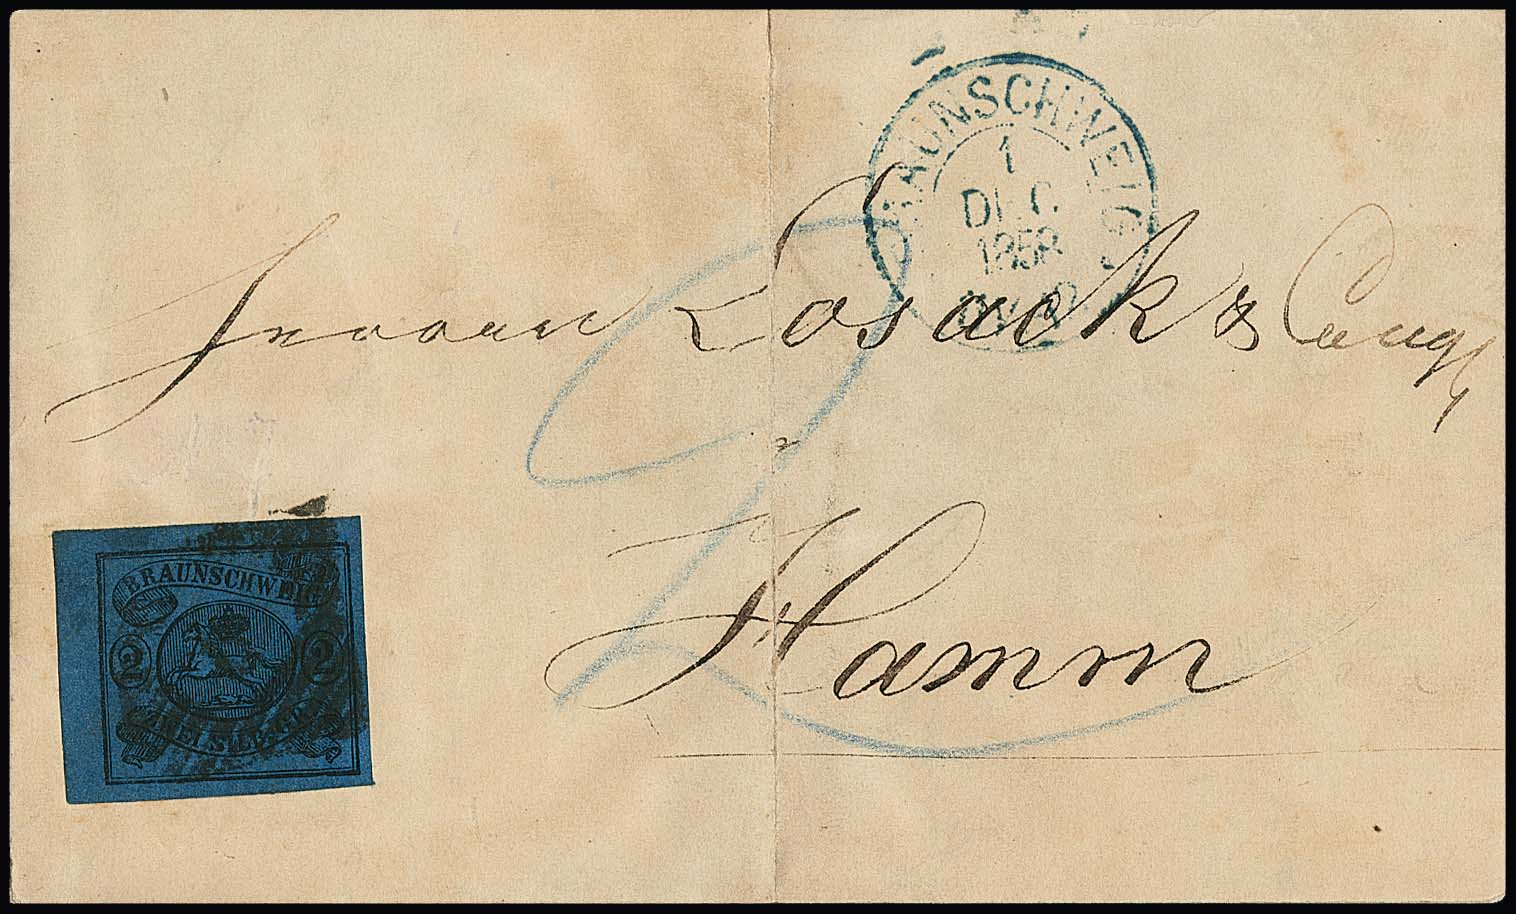 BRAUNSCHWEIG
1
DEC
1858
Herren Losack & Comp
2
Hamm
BRAUNSCHWEIG
2 2
ZWEI SILBGR